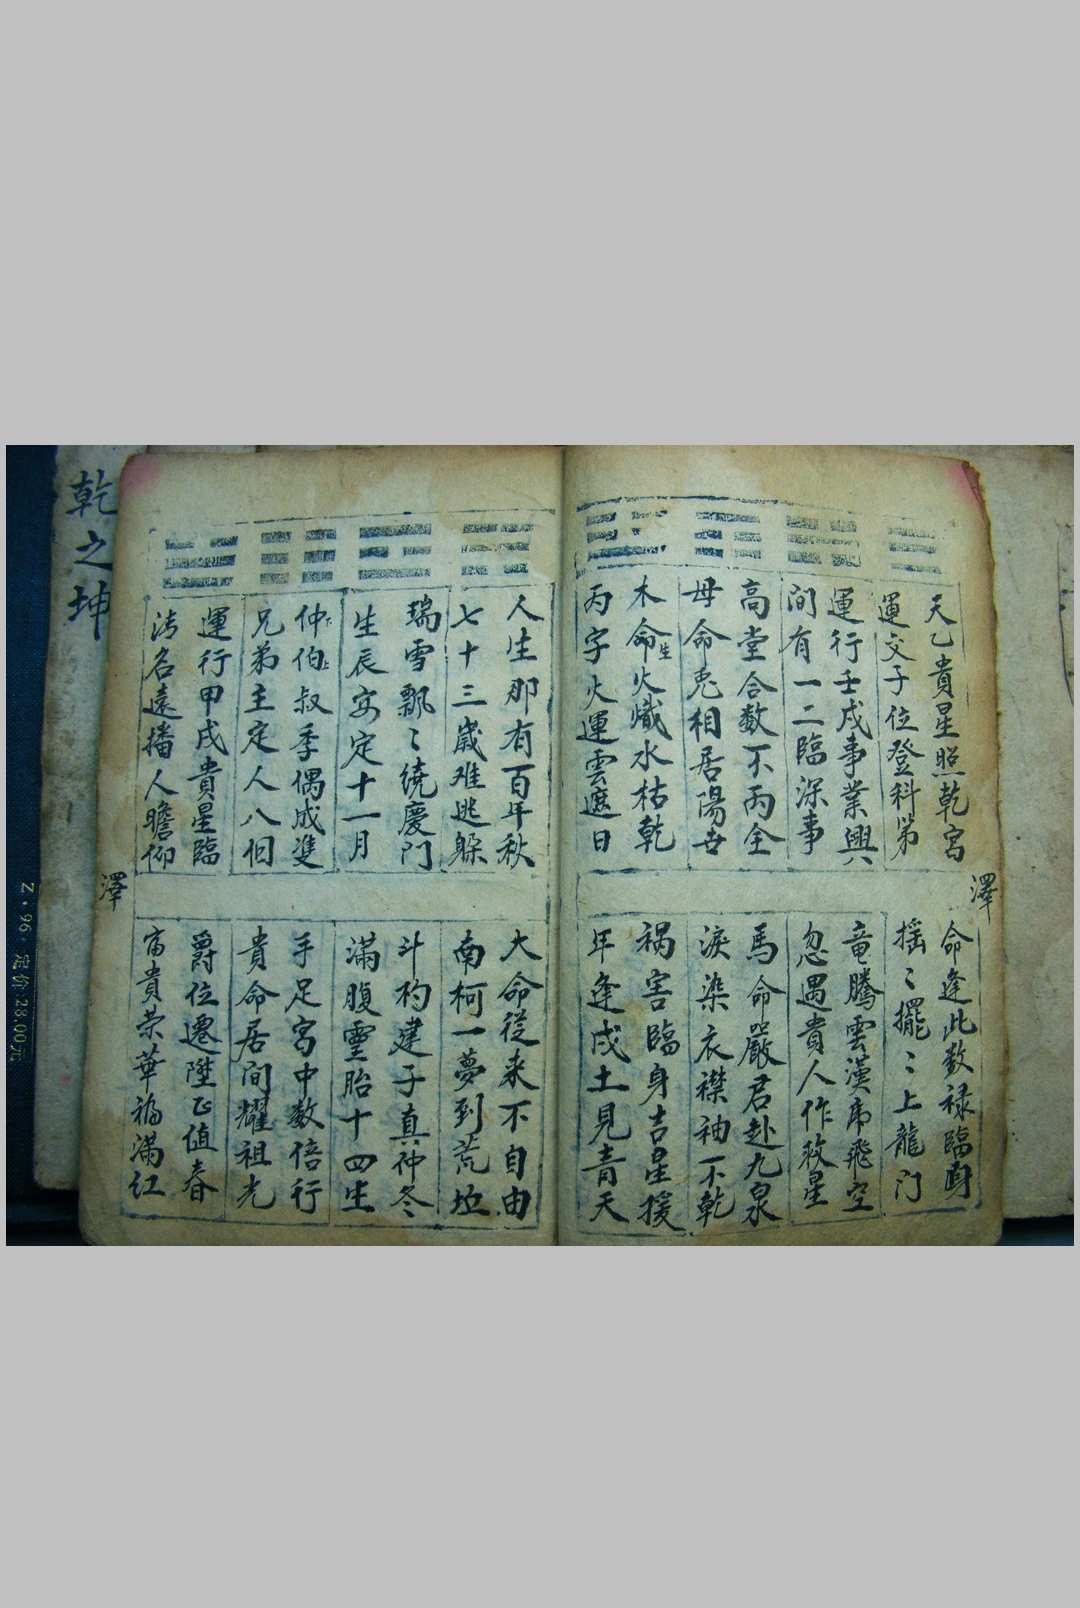 天乙貴星照乾宮
運交子位登科第
運行壬戌事業興
間有一二臨深事
高堂合数不丙全
母命兎相居陽世
木命生火熾水枯乾
丙字火運雲遮日
澤
命逢此数禄臨身
摇〻擺〻上龍門
竜騰雲漢席飛空
忽遇貴人作救星
馬命嚴君赴九泉
淚染衣襟袖不乾
祸害臨身吉星援
年逢戌土見青天
人生那有百年秋
七十三歲难逃躲
瑞雪飄〻繞慶門
生辰安定十一月
仲下伯上叔季偶成雙
兄弟主定人八個
運行甲戌貴星臨
法名遠播人瞻仰
澤
大命從来不自由
南柯一夢到荒坵
斗杓建子真仲冬
滿腹靈胎十四生
手足宮中数倍行
貴命居間耀祖光
爵位遷陞正值春
富貴荣華福滿红
乾之坤
Z·96·定价:28.00元